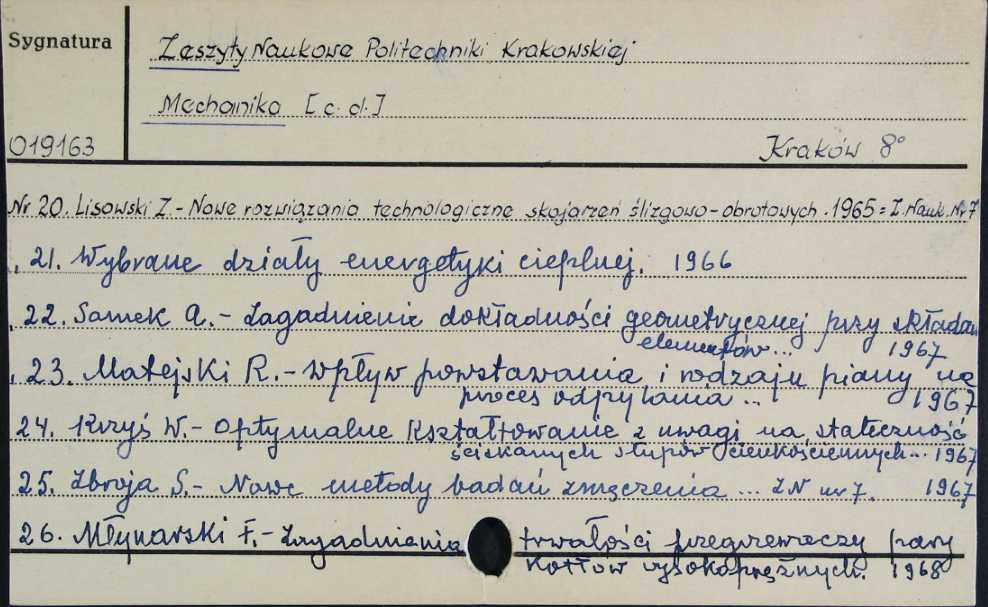 Sygnatura
Zeszyty Naukowe Politechniki Krakowskiej
Mechanika [c.d.]
019163
Kraków 8°
Nr 20. Lisowski Z. - Nowe rozwiązania technologiczne skojarzeń ślizgowo-obrotowych. 1965 = Z. Nauk. Nr 7
21. Wybrane działy energetyki cieplnej. 1966
22. Samek A. - Zagadnienie dokładności geometrycznej przy składan
elementów... 1967
23. Matejski R. - Wpływ powstawania i rodzaju piany na
proces odpylania ... 1967
24. Kryś W. - Optymalne kształtowanie z uwagi na stateczność
ściskanych słupów cienkościennych... 1967
25. Zbroja S. - Nowe metody badań zmęczenia ... ZN nr 7. 1967
26. Młynarski F. - Zagadnienia trwałości przegrzewaczy pary
kotłów wysokoprężnych. 1968